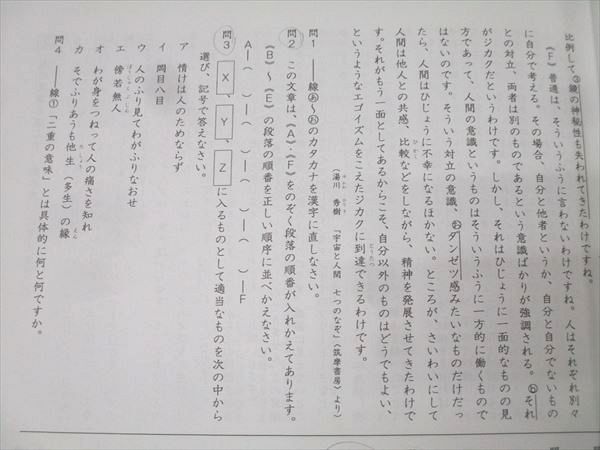 比例して③鏡の神秘性も失われてきたわけですね。
《F》普通は、そういうふうに言わないわけですね。人はそれぞれ別々
に自分で考える。その場合、自分と他者というか、自分と自分でないもの
との対立、両者は別のものであるという意識ばかりが強調される。それ
がジカクだというわけです。しかし、それはひじょうに一面的なものの見
方であって、人間の意識というものはそういうふうに一方的に働くもので
はないのです。そういう対立の意識、おダンゼツ感みたいなものだけだっ
たら、人間はひじょうに不幸になるほかない。ところが、さいわいにして
人間は他人との共感、比較などをしながら、精神を発展させてきたわけで
す。それがもう一面としてあるからこそ、自分以外のものはどうでもよい、
というようなエゴイズムをこえたジカクに到達できるわけです。
(湯川 秀樹 「宇宙と人間 七つのなぞ」(筑摩書房)より)
問1 ――線あ~おのカタカナを漢字に直しなさい。
問2 この文章は、《A》・《F》をのぞく段落の順番が入れかえてあります。
《B》~《E》の段落の順番を正しい順序に並べかえなさい。
A―( )―( )―( )―( )―F
問3 X、Y、Zに入るものとして適当なものを次の中から
選び、記号で答えなさい。
ア 情けは人のためならず
イ 岡目八目
ウ 人のふり見てわがふりなおせ
エ 傍若無人
オ わが身をつねって人の痛さを知れ
カ そでふりあうも他生(多生)の縁
問4 ――線①「二重の意味」とは具体的に何と何ですか。